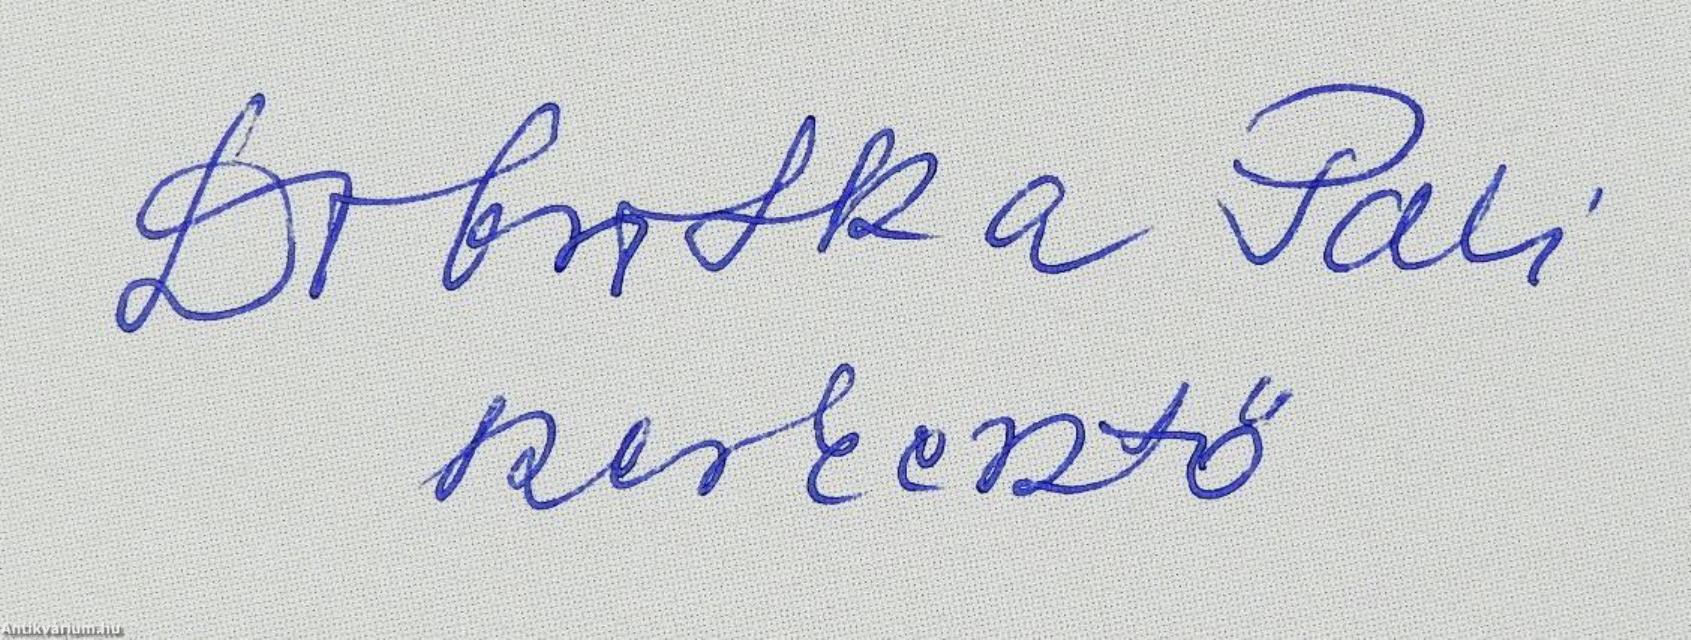 Dobrotka Pali
szerkesztő
Antikvarium.hu